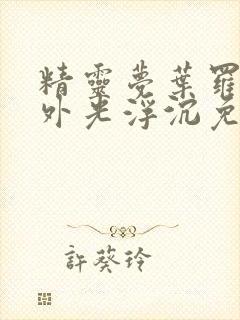 精靈夢葉羅
外光浮沉免
許葵玲